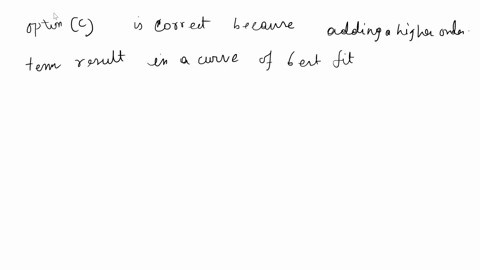 option (c) is correct because adding a higher order
term result in a curve of best fit